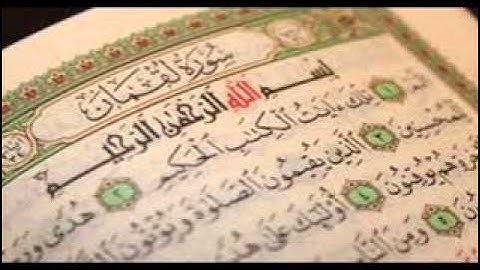 سورة لقمان
بسم الله الرحمن الرحيم
الم ١ تلك ءايت الكتب الحكيم ٢ هدى ور
للمحسنين ٣ الذين يقيمون الصلوة ويؤتون
هم يوقنون ٤ أولئك على هدى
٥ ومن الناس